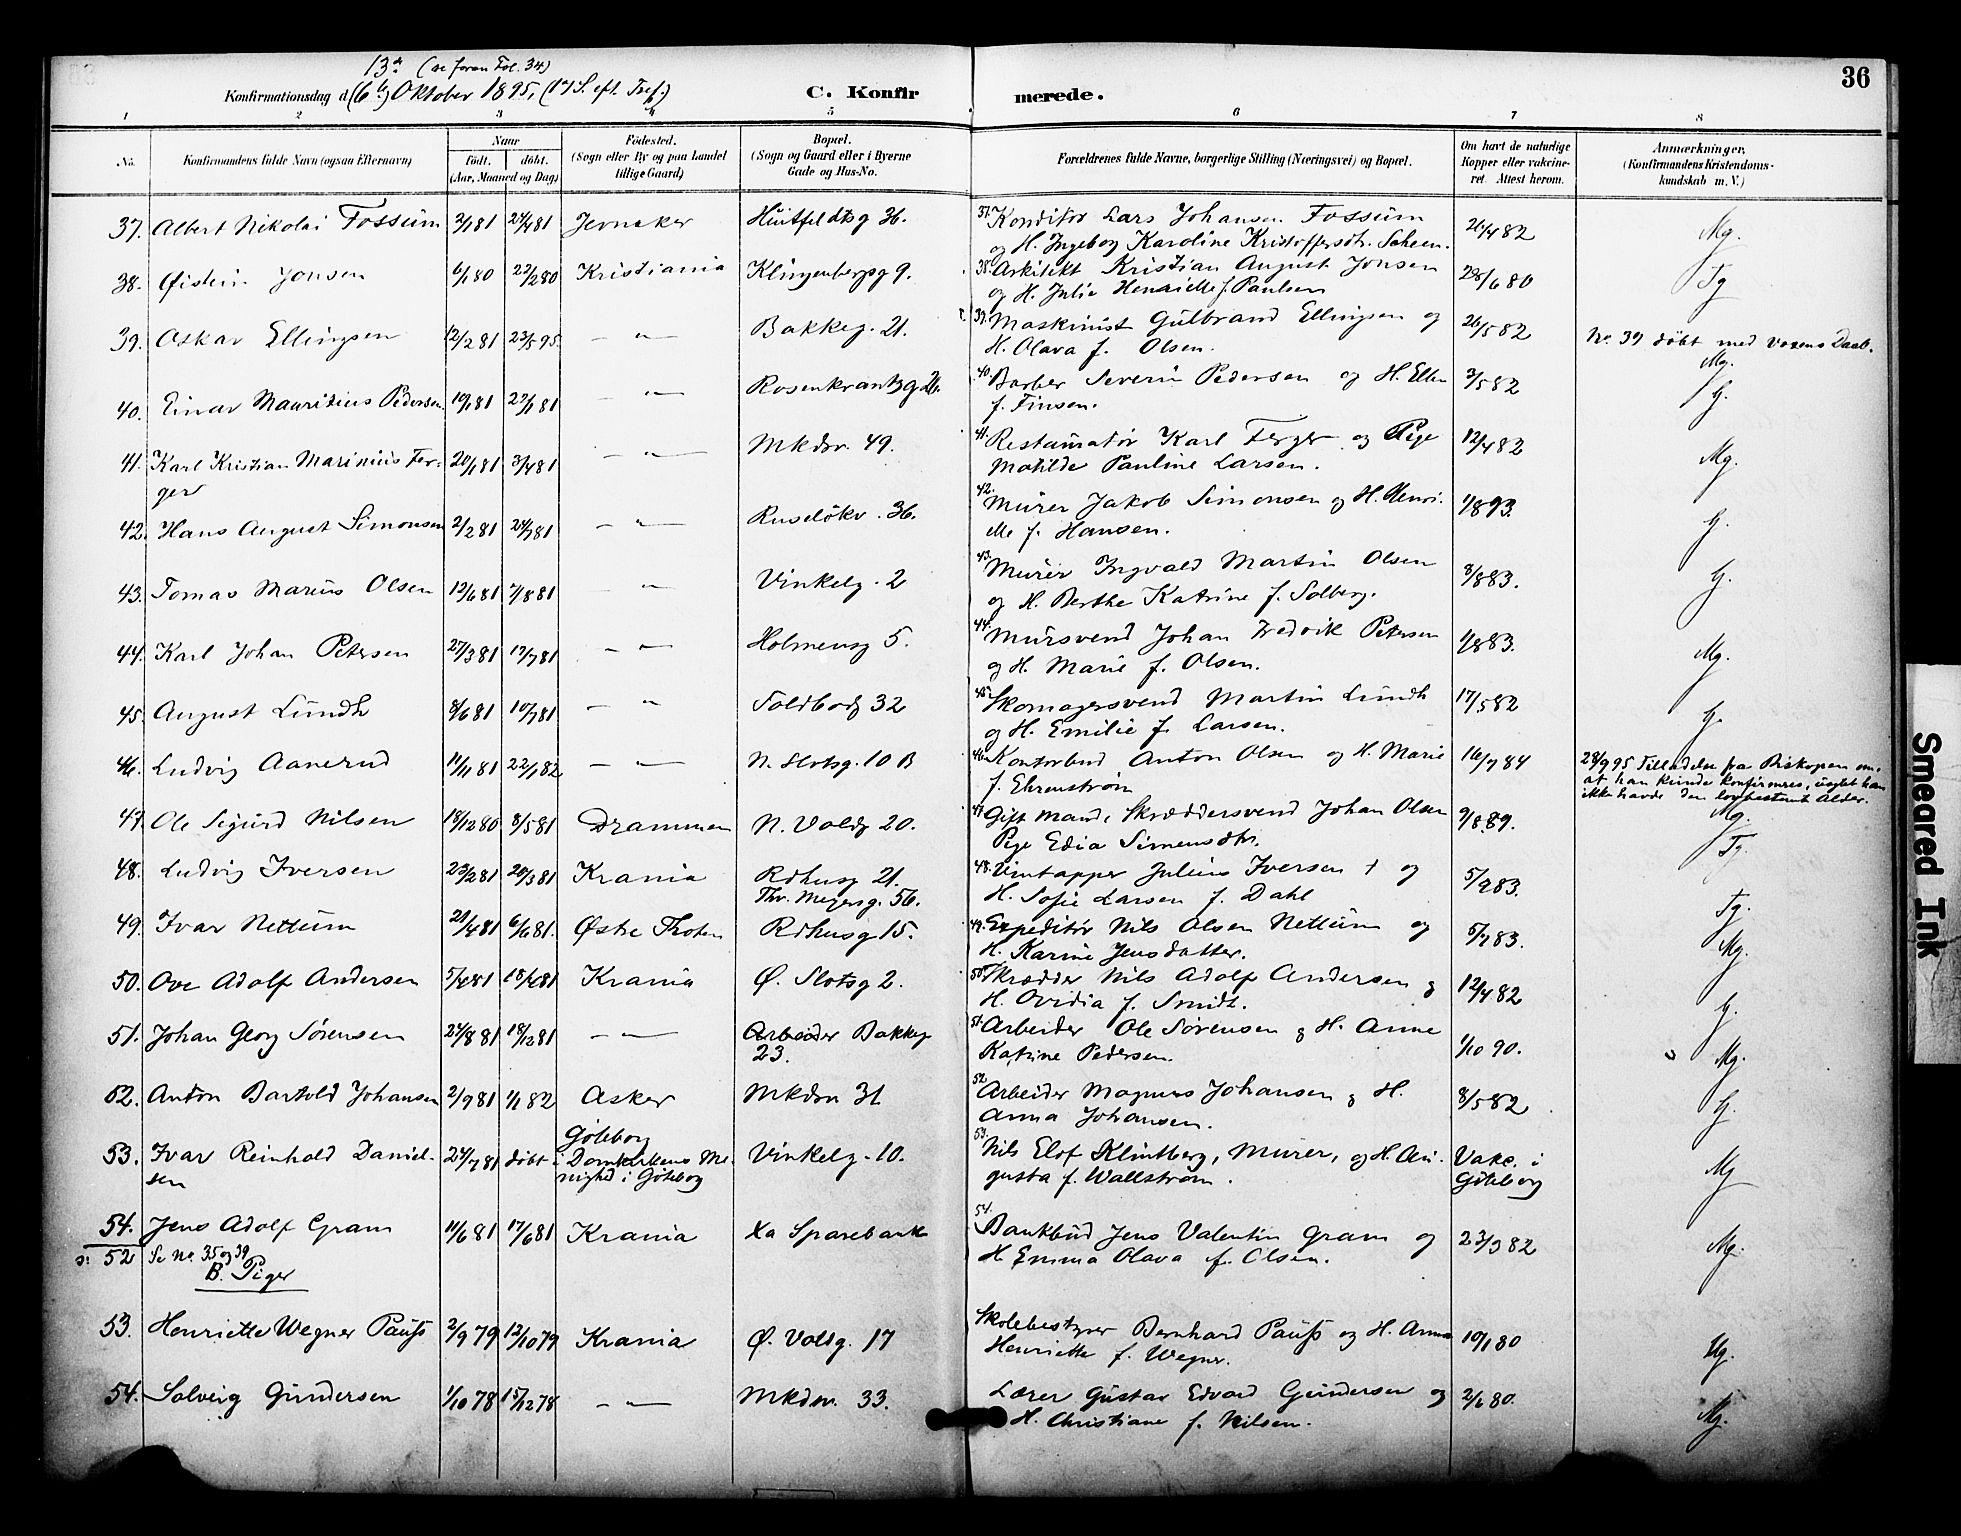 36
13de (se foran Fol. 34)
Konfirmationsdag d (6te) Oktober 1895, (17 S. eft. Tref.)
C. Konfirmerede.
1 2 3 4 5 6 7 8
No. Konfirmandens fulde Navn (ogsaa Efternavn) Naar født. døbt. (Aar, Maaned og Dag) Fødested. (Sogn eller By og paa Landet tillige Gaard) Bopæl. (Sogn og Gaard eller i Byerne Gade og Hus-No. Forældrenes fulde Navne, borgerlige Stilling (Næringsvei) og Bopæl. Om havt de naturlige Kopper eller vakcineret. Attest herom. Anmærkninger, (Konfirmandens Kristendomskundskab m. V.)
37. Albert Nikolai Fossum 2/1 81 24/4 81 Jevnaker Huitfeldtsg 36. 37. Konditor Lars Johansen Fossum 26/4 82 Mg.
og H. Ingeborg Karoline Kristoffersdtr. Scheen.
38. Øistein Jensen 6/1 80 22/2 80 Kristiania Klingenbergsg 9. 38. Arkitekt Kristian August Jensen 28/6 80 Tg
og H. Julie Henriette f. Paulsen
39. Oskar Ellingsen 12/2 81 23/5 95. — " — Bakkeg. 21. 39. Maskinist Gulbrand Ellingsen og 26/5 82 No. 39 døbt med voxens Daab.
H. Olava f. Olsen. Mg.
40. Einar Mauritius Pedersen 19/1 81 27/1 81 — " — Rosenkrantzg 26. 40. Barber Severin Pedersen og H. Ellen 3/5 82 G.
f. Finsen.
41. Karl Kristian Marinius Fer- 20/1 81 3/4 81 — " — Mkdsv. 49. 41. Restauratør Karl Ferger og Pige 12/4 82 Mg.
ger Matilde Pauline Larsen.
42. Hans August Simonsen 2/2 81 24/7 81 — " — Ruseløkv. 36. 42. Murer Jakob Simonsen og H. Henri- 1/8 93. G.
ette f. Hansen.
43. Tomas Marius Olsen 12/6 81 7/8 81 — " — Vinkelg. 2 43. Murer Ingvald Martin Olsen 8/8 83. G.
og H. Berthe Katrine f. Solberg.
44. Karl Johan Petersen 27/3 81 17/7 81 — " — Holmensg 5. 44. Mursvend Johan Fredrik Petersen 1/8 83. Mg.
og H. Marie f. Olsen.
45. August Lundh 8/6 81 10/7 81 — " — Toldbodg 32 45. Skomagersvend Martin Lundh 17/5 82 G.
og H. Emilie f. Larsen.
46. Ludvig Aanerud 11/1 81 22/1 82 — " — N. Slotsg. 10 B 46. Kontorbud Anton Olsen og H. Marie 16/7 84 28/9 95 Tilladelse fra Biskopen om,
f. Ehrenstrøm at han kunde konfirmeres, uagtet han
ikke havde den lovbestemte Alder.
Mg.
47. Ole Sigurd Nilsen 18/12 80 8/5 81 Drammen N. Voldg 20. 47. Gift Mand, Skræddersvend Johan Olsen 9/8 89. Tg.
Pige Edia Simensdtr.
48. Ludvig Iversen 23/2 81 20/3 81 Krania Rdhusg 21. 48. Vintapper Julius Iversen † og 5/9 83. Tg.
Thv. Meyersg. 56. H. Sofie Larsen f. Dahl
49. Ivar Nettum 21/4 81 6/6 81. Østre Thoten Rdhusg 15. 49. Expeditør Nils Olsen Nettum og 5/7 83. Mg.
H. Karine Jensdatter.
50. Ove Adolf Andersen 5/4 81 18/4 81 Krania Ø. Slotsg 2. 50. Skrædder Nils Adolf Andersen og 12/4 82 G.
H. Ovidia f. Smidt.
51. Johan Georg Sørensen 24/8 81 18/12 81 — " — Arbeider Bakkeg 51. Arbeider Ole Sørensen og H. Anne 1/10 90. Mg.
23. Katrine Pedersen.
52. Anton Bartold Johansen 2/9 81 1/1 82 Asker Mkdsv 31 52. Arbeider Magnus Johansen og H. 8/5 82 G.
Anna Johansen.
53. Ivar Reinhold Daniel- 24/7 81 døbt i Göteborg Domkirkens Me- Vinkelg. 10. 53. Nils Elof Klintberg, Murer, og H. Au- Vakc. i Mg
sen nighed i Göteborg gusta f. Wallstrøm. Göteborg
54. Jens Adolf Gram 11/6 81 17/6 81 Krania Xa Sparebank 54. Bankbud Jens Valentin Gram og 23/3 82 Mg.
ɔ: 52 Se No. 35 og 39 H. Emma Olava f. Olsen.
B. Piger
53. Henriette Wegner Pauss 2/9 79 12/10 79 Krania Ø. Voldg. 17 Skolebestyrer Bernhard Pauss og H. Anna 10/1 80 Ug.
Henriette f. Wegner.
54. Solveig Gundersen 1/10 78 15/12 78 — " — Mkdsv. 33. Lærer Gustav Edvard Gundersen og 2/6 80. Mg.
H. Christiane f. Nilsen.
Smeared Ink